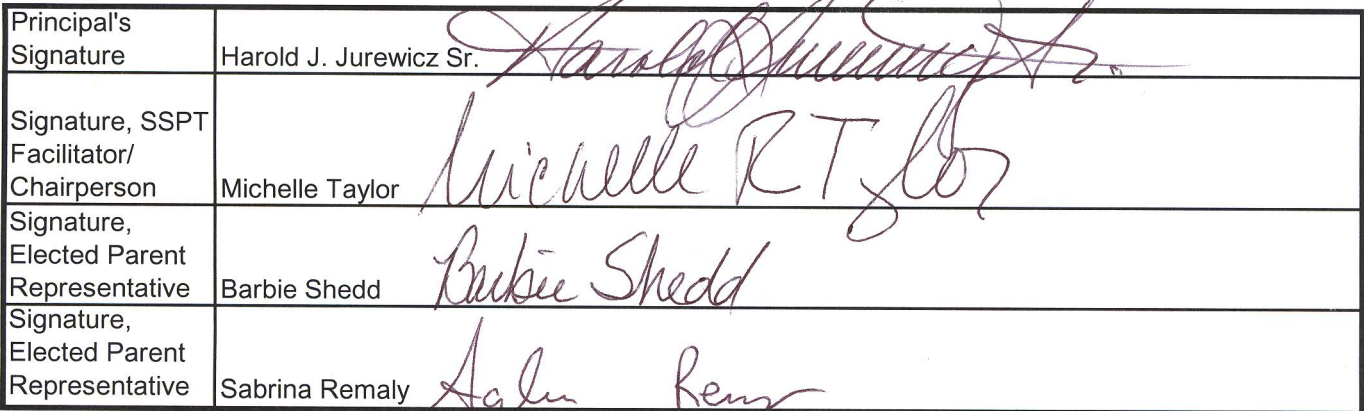 Principal's
Signature
Harold J. Jurewicz Sr. Harold J Jurewicz Sr.
Signature, SSPT
Facilitator/
Chairperson
Michelle Taylor Michelle R Taylor
Signature,
Elected Parent
Representative
Barbie Shedd Barbie Shedd
Signature,
Elected Parent
Representative
Sabrina Remaly